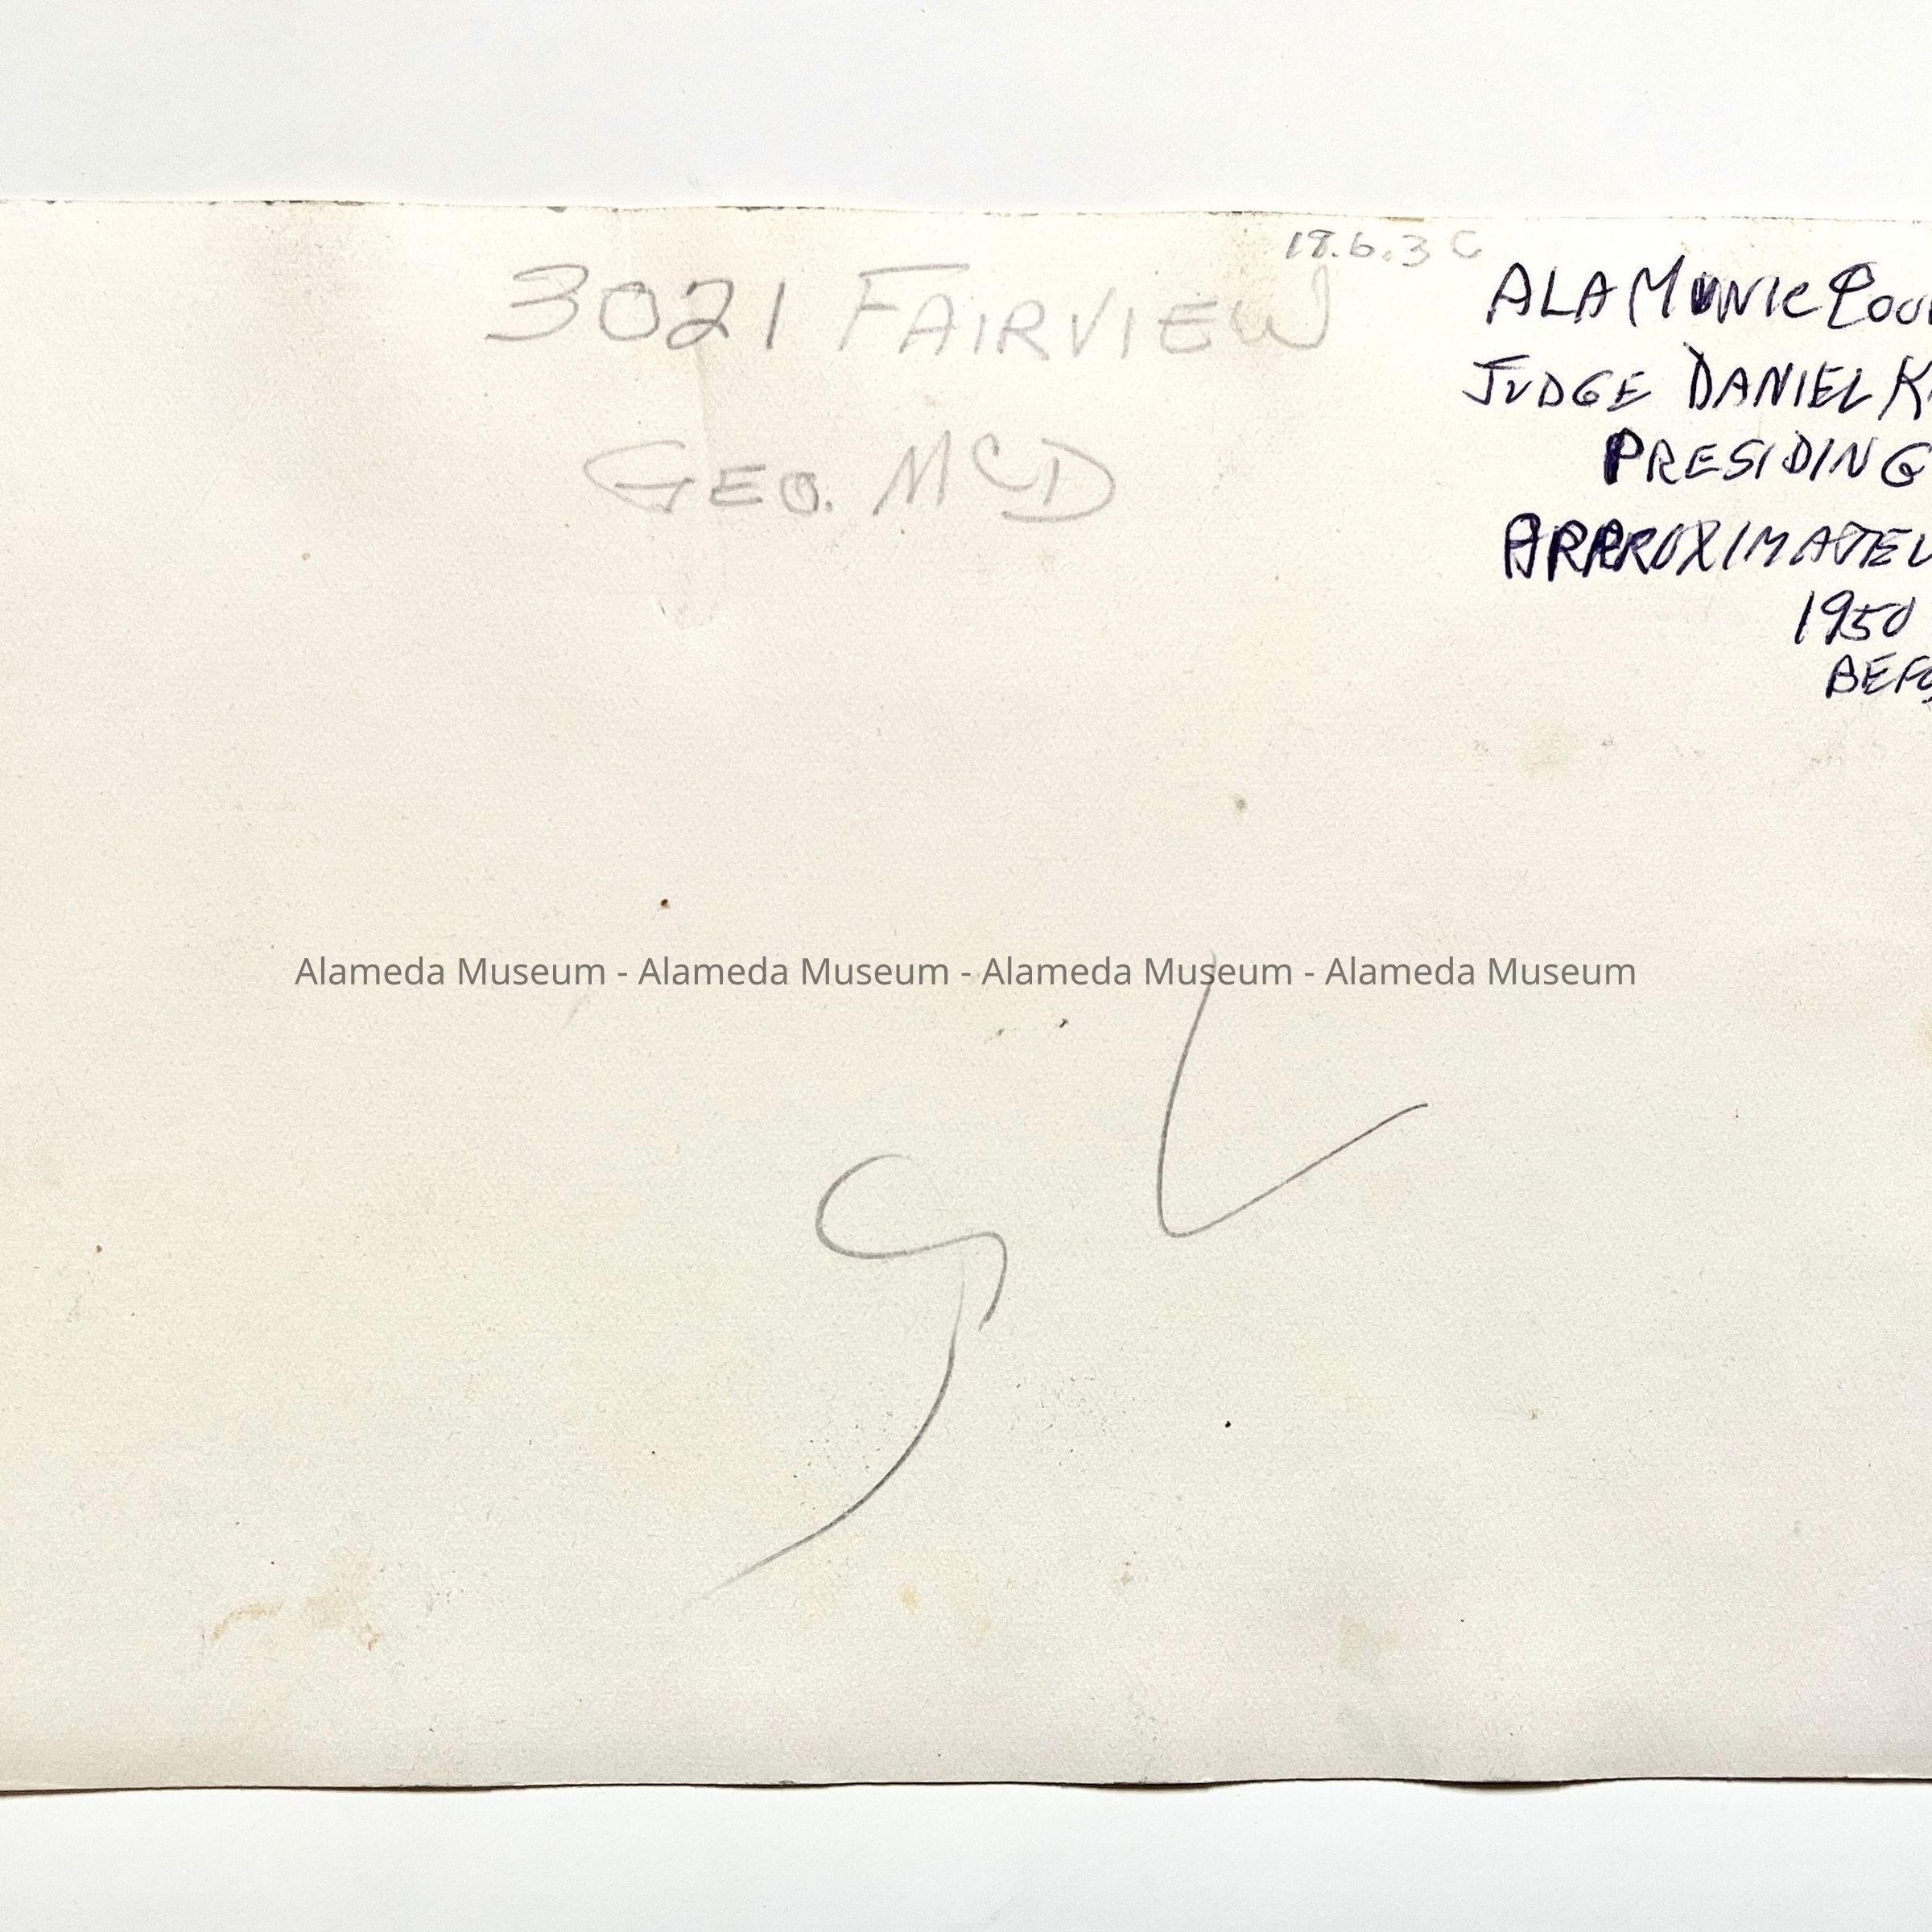 18.6.3 C
3021 FAIRVIEW
GEO. McD
ALA MUNIC COU
JUDGE DANIEL K
PRESIDING
APPROXIMATEL
1950
BEFO
Alameda Museum - Alameda Museum - Alameda Museum - Alameda Museum